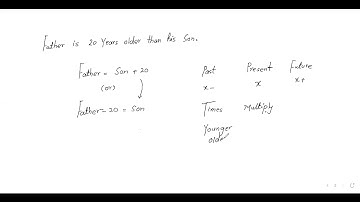 Father is 20 Years older than his Son.
Father = Son + 20
(or)
Father - 20 = Son
Past Present Future
x - x x +
Times Multiply
Younger
older